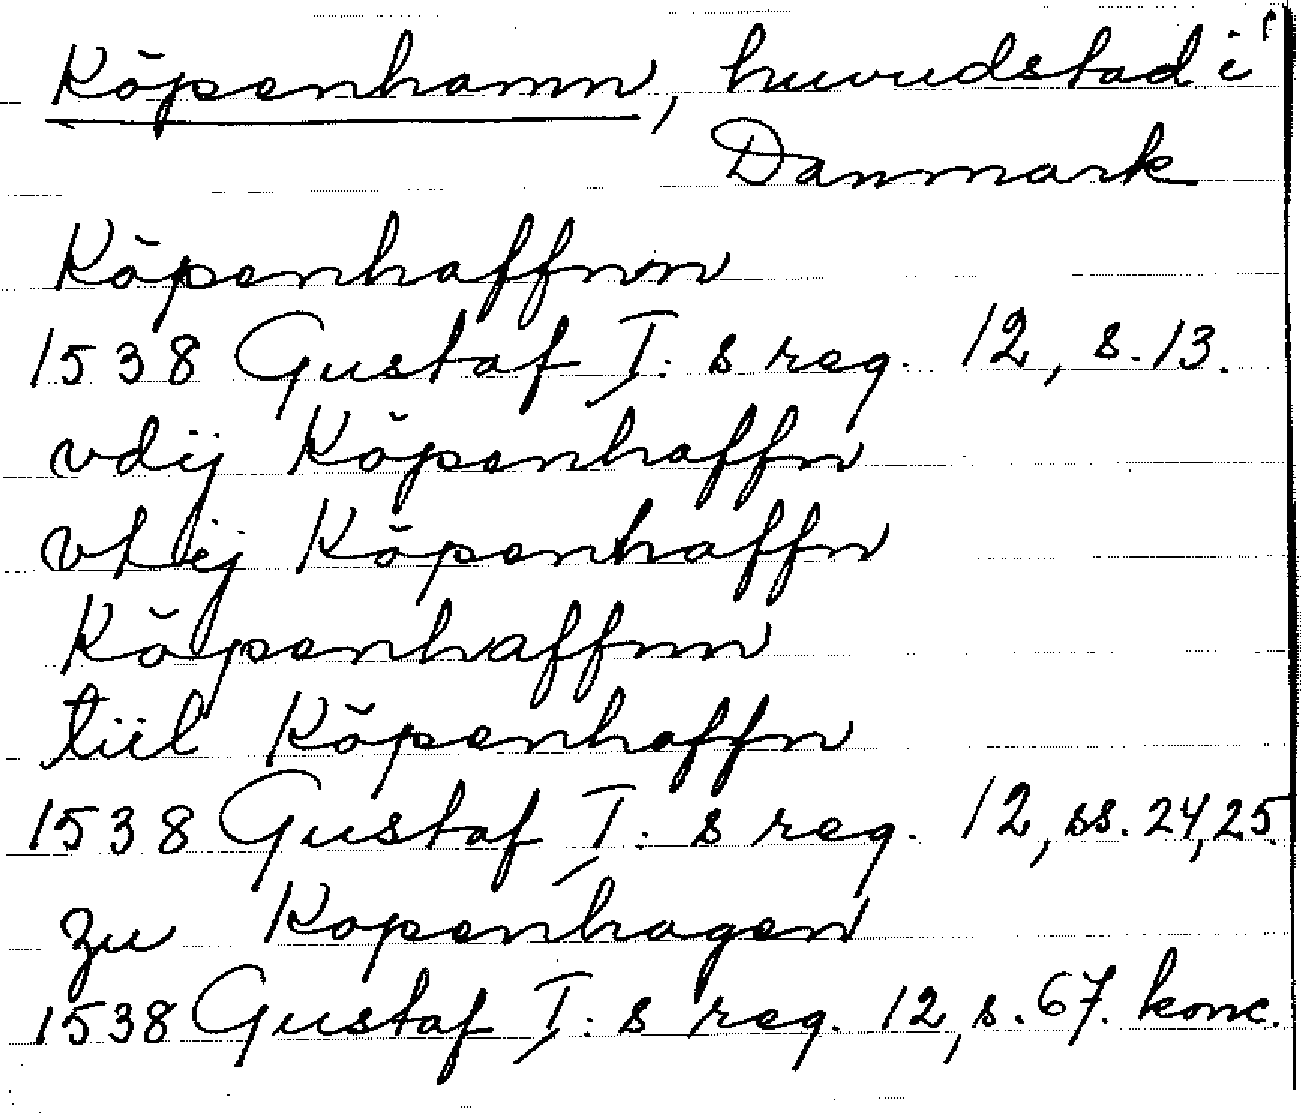 Köpenhamn, huvudstad i
Danmark
Köpenhaffnn
1538 Gustaf I:s reg. 12, s. 13.
vdij Köpenhaffn
vtij Köpenhaffn
Köpenhaffnn
tiil Köpenhaffn
1538 Gustaf I:s reg. 12, ss. 24, 25.
zu Kopenhagen
1538 Gustaf I:s reg. 12, s. 67. konc.